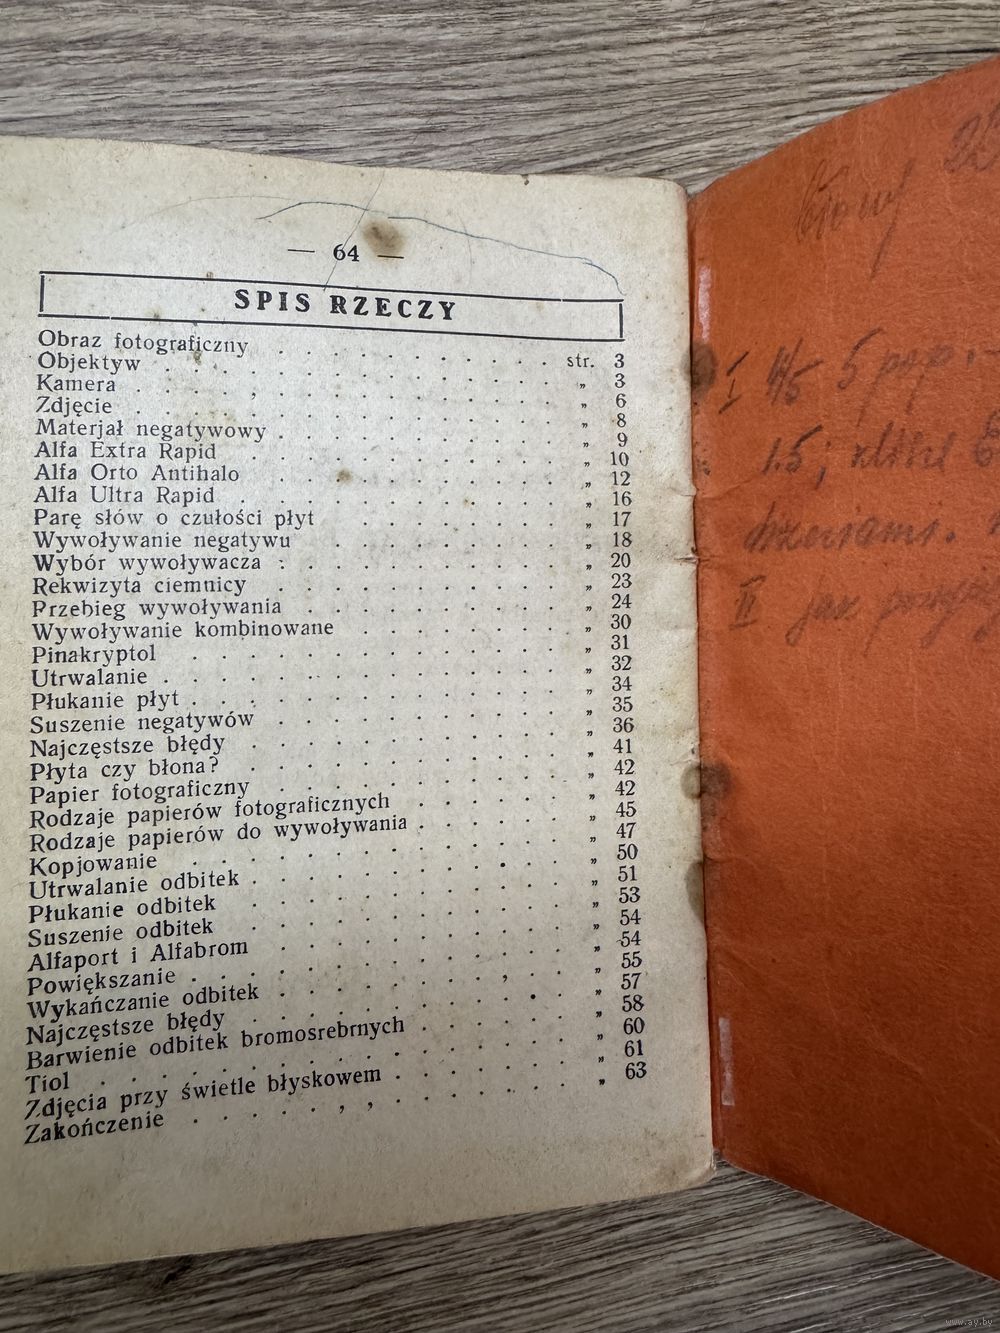 — 64 —
SPIS RZECZY
Obraz fotograficzny . . . . . . . . . . str. 3
Objektyw . . . . . . . . . . „ 3
Kamera . . . . . . . . . . „ 6
Zdjęcie . . . . . . . . . . „ 8
Materjał negatywowy . . . . . . . . . . „ 9
Alfa Extra Rapid . . . . . . . . . . „ 10
Alfa Orto Antihalo . . . . . . . . . . „ 12
Alfa Ultra Rapid . . . . . . . . . . „ 16
Parę słów o czułości płyt . . . . . . . . „ 17
Wywoływanie negatywu . . . . . . . . „ 18
Wybór wywoływacza . . . . . . . . . . „ 20
Rekwizyta ciemnicy . . . . . . . . . . „ 23
Przebieg wywoływania . . . . . . . . . „ 24
Wywoływanie kombinowane . . . . . . . „ 30
Pinakryptol . . . . . . . . . . „ 31
Utrwalanie . . . . . . . . . . „ 32
Płukanie płyt . . . . . . . . . . „ 34
Suszenie negatywów . . . . . . . . . . „ 35
Najczęstsze błędy . . . . . . . . . . „ 36
Płyta czy błona? . . . . . . . . . . „ 41
Papier fotograficzny . . . . . . . . . . „ 42
Rodzaje papierów fotograficznych . . . . . . „ 42
Rodzaje papierów do wywoływania . . . . . . „ 45
Kopjowanie . . . . . . . . . . „ 47
Utrwalanie odbitek . . . . . . . . . . „ 50
Płukanie odbitek . . . . . . . . . . „ 51
Suszenie odbitek . . . . . . . . . . „ 53
Alfaport i Alfabrom . . . . . . . . . . „ 54
Powiększanie . . . . . . . . . . „ 54
Wykańczanie odbitek . . . . . . . . . . „ 55
Najczęstsze błędy . . . . . . . . . . „ 57
Barwienie odbitek bromosrebrnych . . . . . . „ 58
Tiol . . . . . . . . . . „ 60
Zdjęcia przy świetle błyskowem . . . . . . . „ 61
Zakończenie . . . . . . . . . . „ 63
I 5
1.5;
II jak
www.ay.by